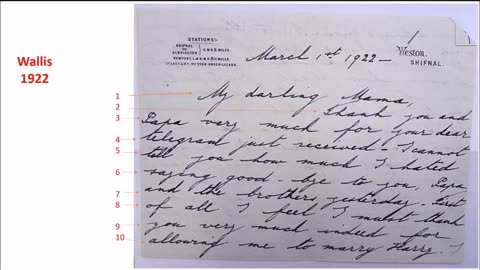 Wallis
1922
STATIONS:-
SHIFNAL
March 1st 1922 —
Weston,
SHIFNAL.
1 My darling Mama,
2 Thank you and
3 Papa very much for your dear
4 telegram, just received - I cannot
5 tell you how much I hated
6 saying good-bye to you, Papa
7 and the brothers, yesterday. First
8 of all I feel I must thank
9 you very much indeed for
10 allowing me to marry Harry. I